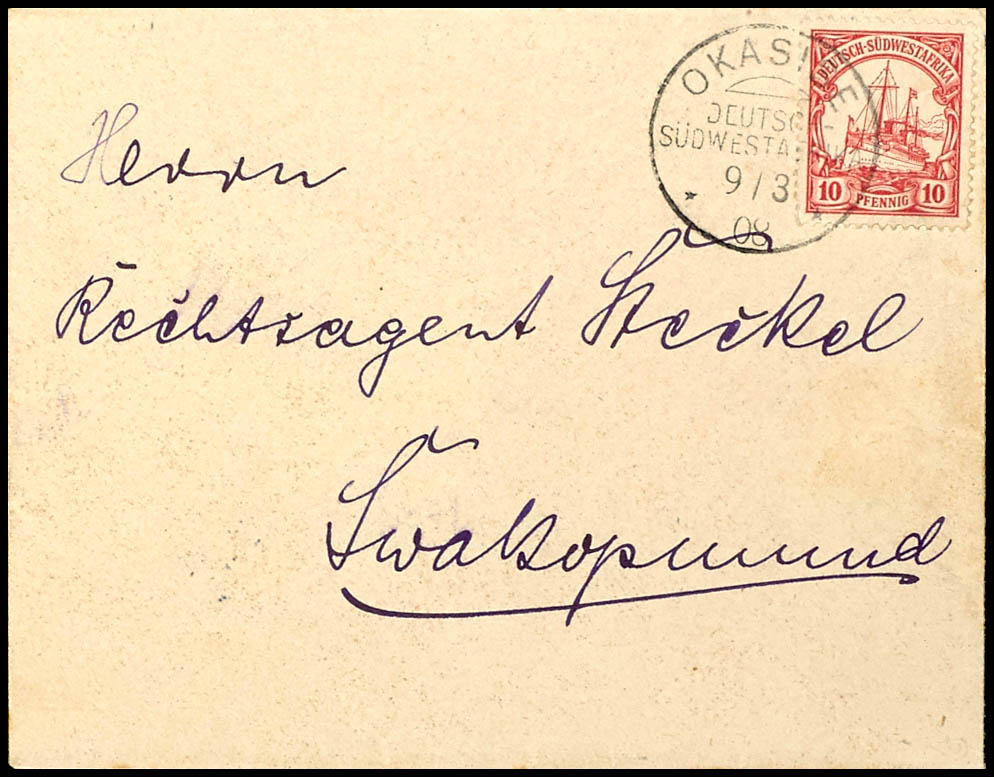 OKASISE
DEUTSCH-
SÜDWESTAFRIKA
9/3
08
DEUTSCH-SÜDWESTAFRIKA
10 PFENNIG 10
Herrn
Rechtsagent Steckel
Swakopmund